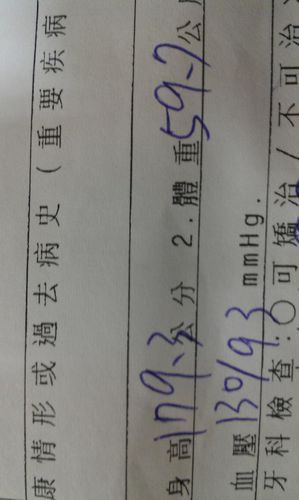 康情形或過去病史(重要疾病
身高179.3公分 2.體重59.7公
血壓130/93 mmHg.
牙科檢查:○可矯治/不可治